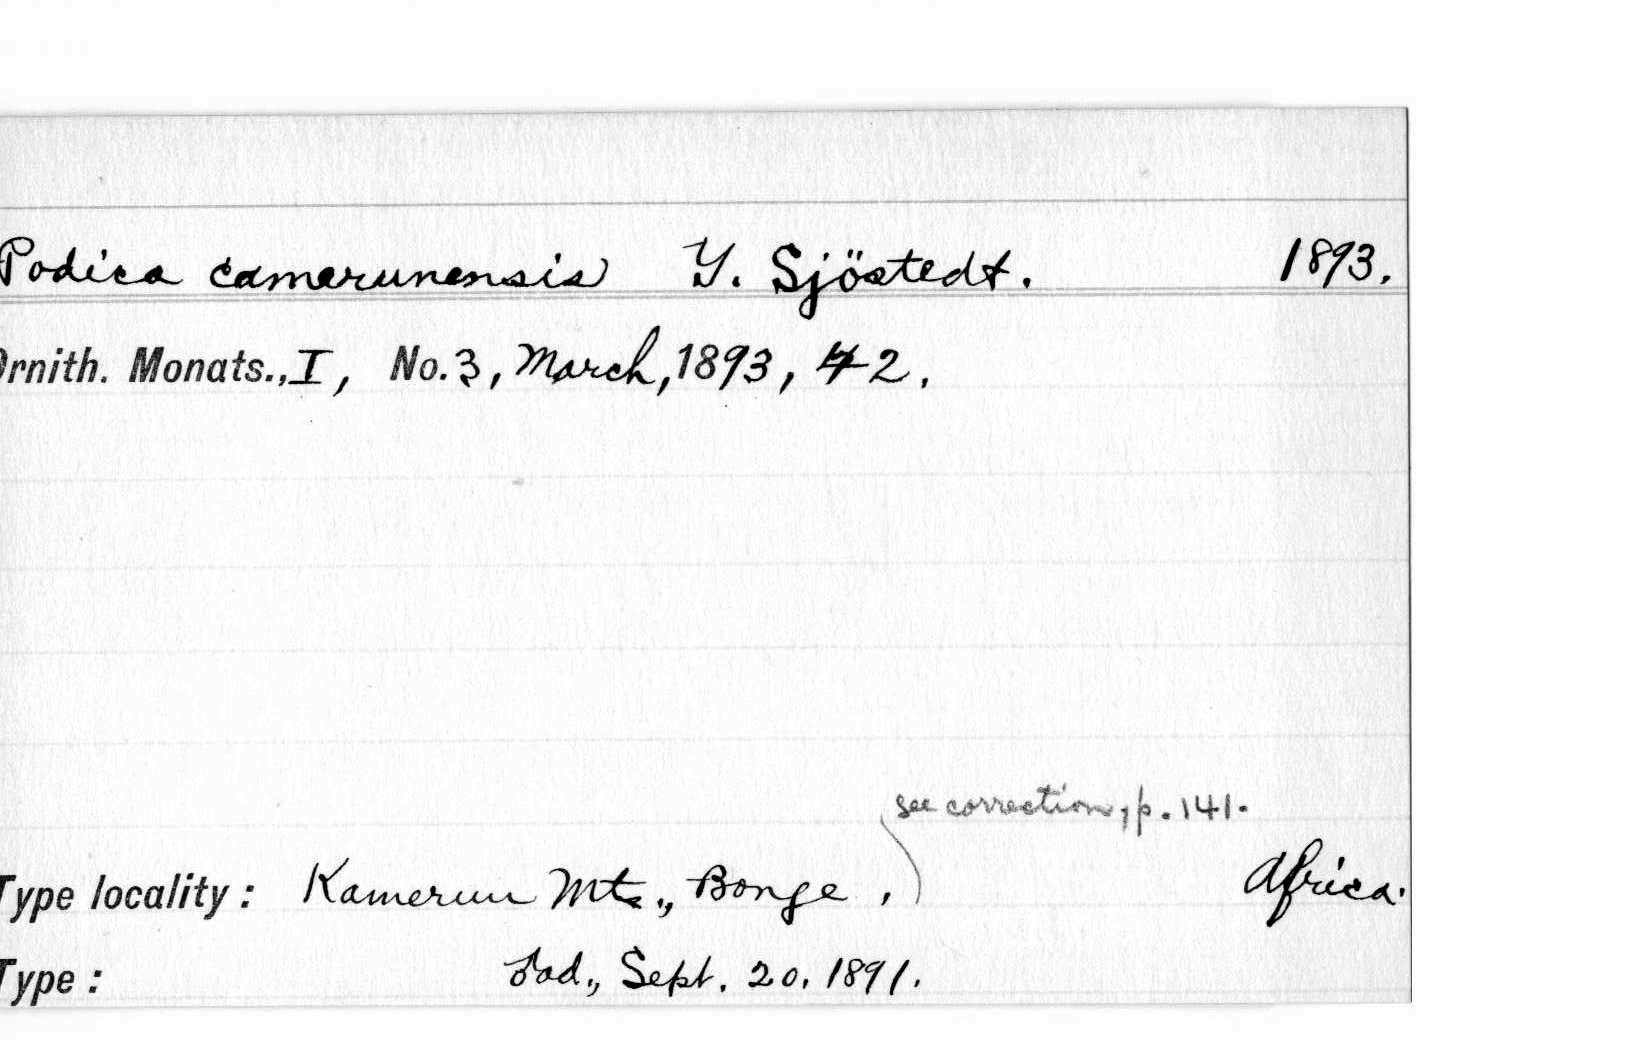 Podica camerunensis Y. Sjöstedt. 1893.
Ornith. Monats., I, No. 3, March, 1893, 42.
see correction, p. 141.
Type locality: Kamerun Mts., Bonge, Africa.
Type: ♂ad., Sept. 20, 1891.